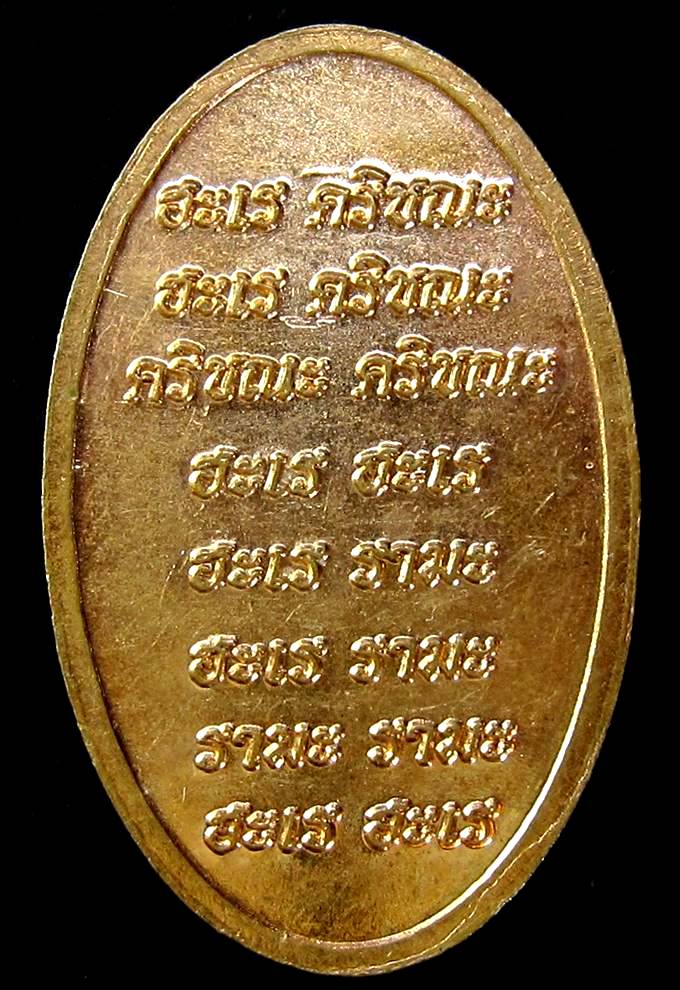 ฮะเร คริชณะ
ฮะเร คริชณะ
คริชณะ คริชณะ
ฮะเร ฮะเร
ฮะเร รามะ
ฮะเร รามะ
รามะ รามะ
ฮะเร ฮะเร